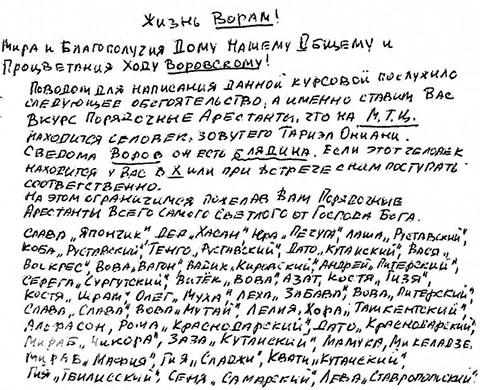 Жизнь Ворам!
Мира и Благополучия Дому Нашему Общему и
Процветания Ходу Воровскому!
Поводом для написания данной курсовой послужило
следующее обстоятельство, а именно ставим Вас
в курс Порядочные Арестанты, что на М.Т.Ц.
находится селовек, зовутего Тариэл Ониани.
Сведома Воров он есть Блядина. Если этот человек
находится у Вас в Х или при встрече с ним поступать
соответственно.
На этом ограничимся пожелав Вам Порядочные
Арестанты Всего самого светлого от Господа Бога.
Слава „Япончик" Дед „Хасан" Юра „Пичуга" Лаша „Руставский",
Коба „Руставский", Тенго „Руставский", Дато „Кутаиский", Вася
„Воскрес", Вова „Вагон", Вадик „Кировский", Андрей „Питерский",
Серега „Сургутский", Витёк, Вова, Азат, Костя „Гизя",
Костя „Шрам", Олег „Муха", Леха „Забава", Вова „Питерский",
Слава, Слава, Вова „Мутай", Лелия, Хора, Ташкентский",
Альфасон, Рома „Краснодарский", Дато „Краснодарский",
Мираб „Чикора", Заза „Кутаиский", Мамука, Микеладзе,
Мираб „Мафия", Гия „Сладжи", Квати „Кутаиский"
Гия „Тбилисский", Сеня „Самарский", Лева „Ставропольский"